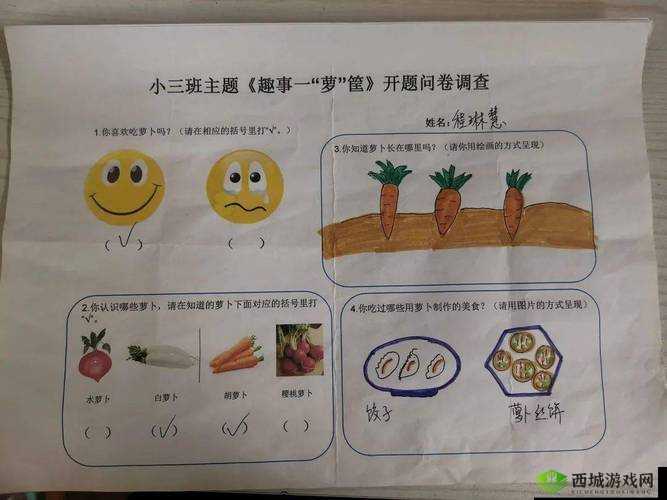 小三班主题《趣事一“萝”筐》开题问卷调查
姓名:程琳慧
1.你喜欢吃萝卜吗？（请在相应的括号里打“√”。）
（√） （ ）
2.你认识哪些萝卜，请在知道的萝卜下面对应的括号里打
“√”。
水萝卜 白萝卜 胡萝卜 樱桃萝卜
（ ） （√） （√） （ ）
3.你知道萝卜长在哪里吗？（请你用绘画的方式呈现）
4.你吃过哪些用萝卜制作的美食？（请用图片的方式呈现）
饺子 萝卜丝饼
西城游戏网
XICHENGYOUXIWANG